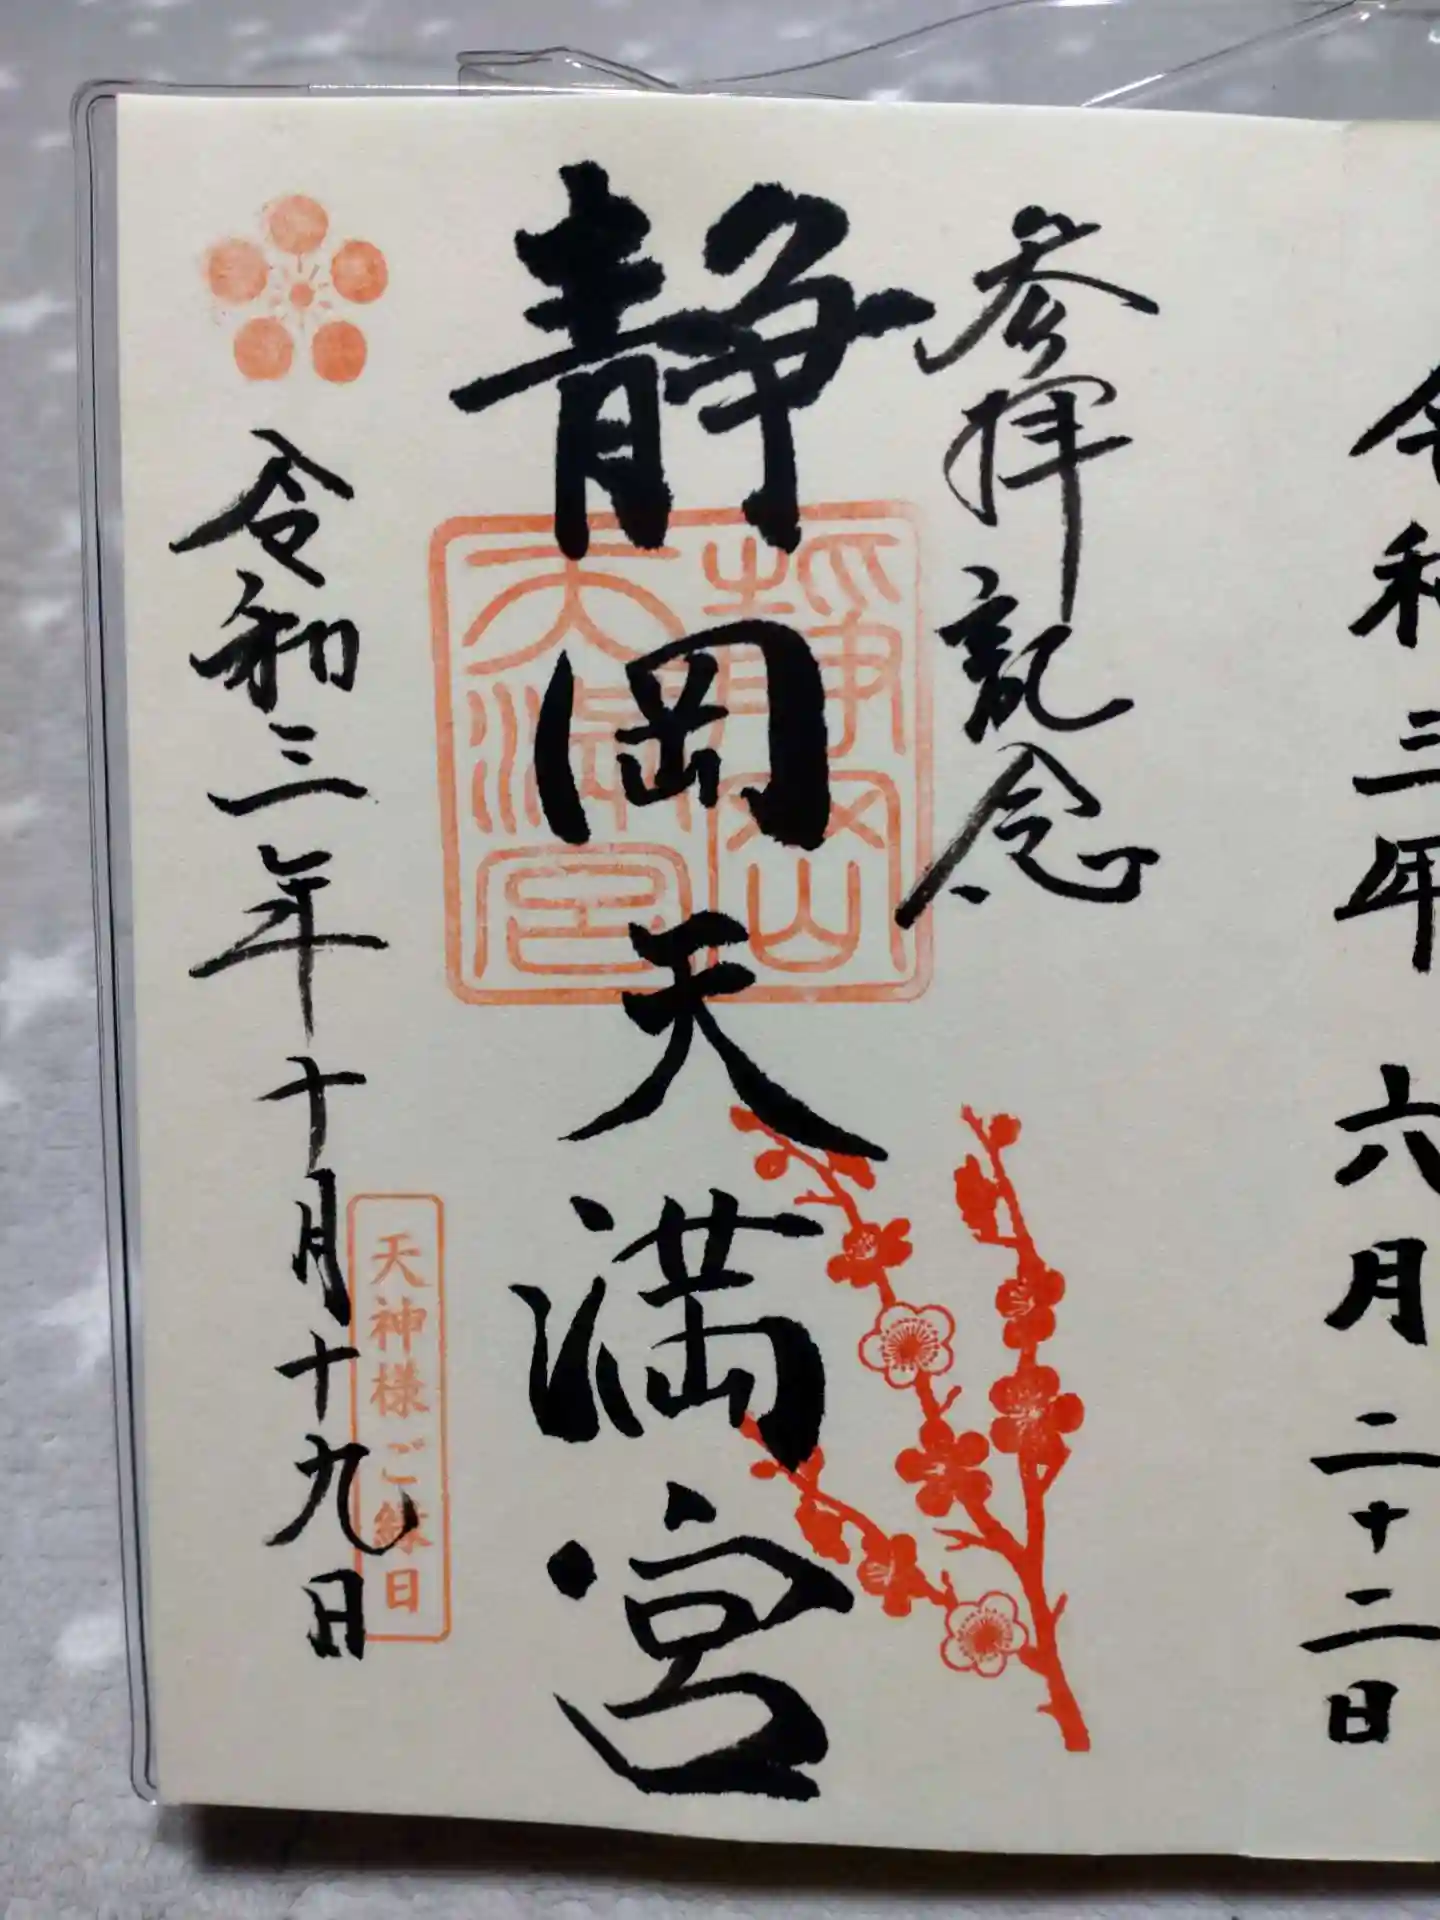 令和三年 六月二十二日
参拝記念
静岡天満宮
静岡
天満宮
天神様ご縁日
令和三年十月十九日